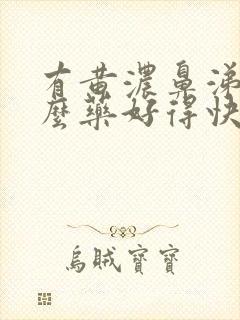 有黃濃鼻涕
麼藥好得快
烏賊寶寶